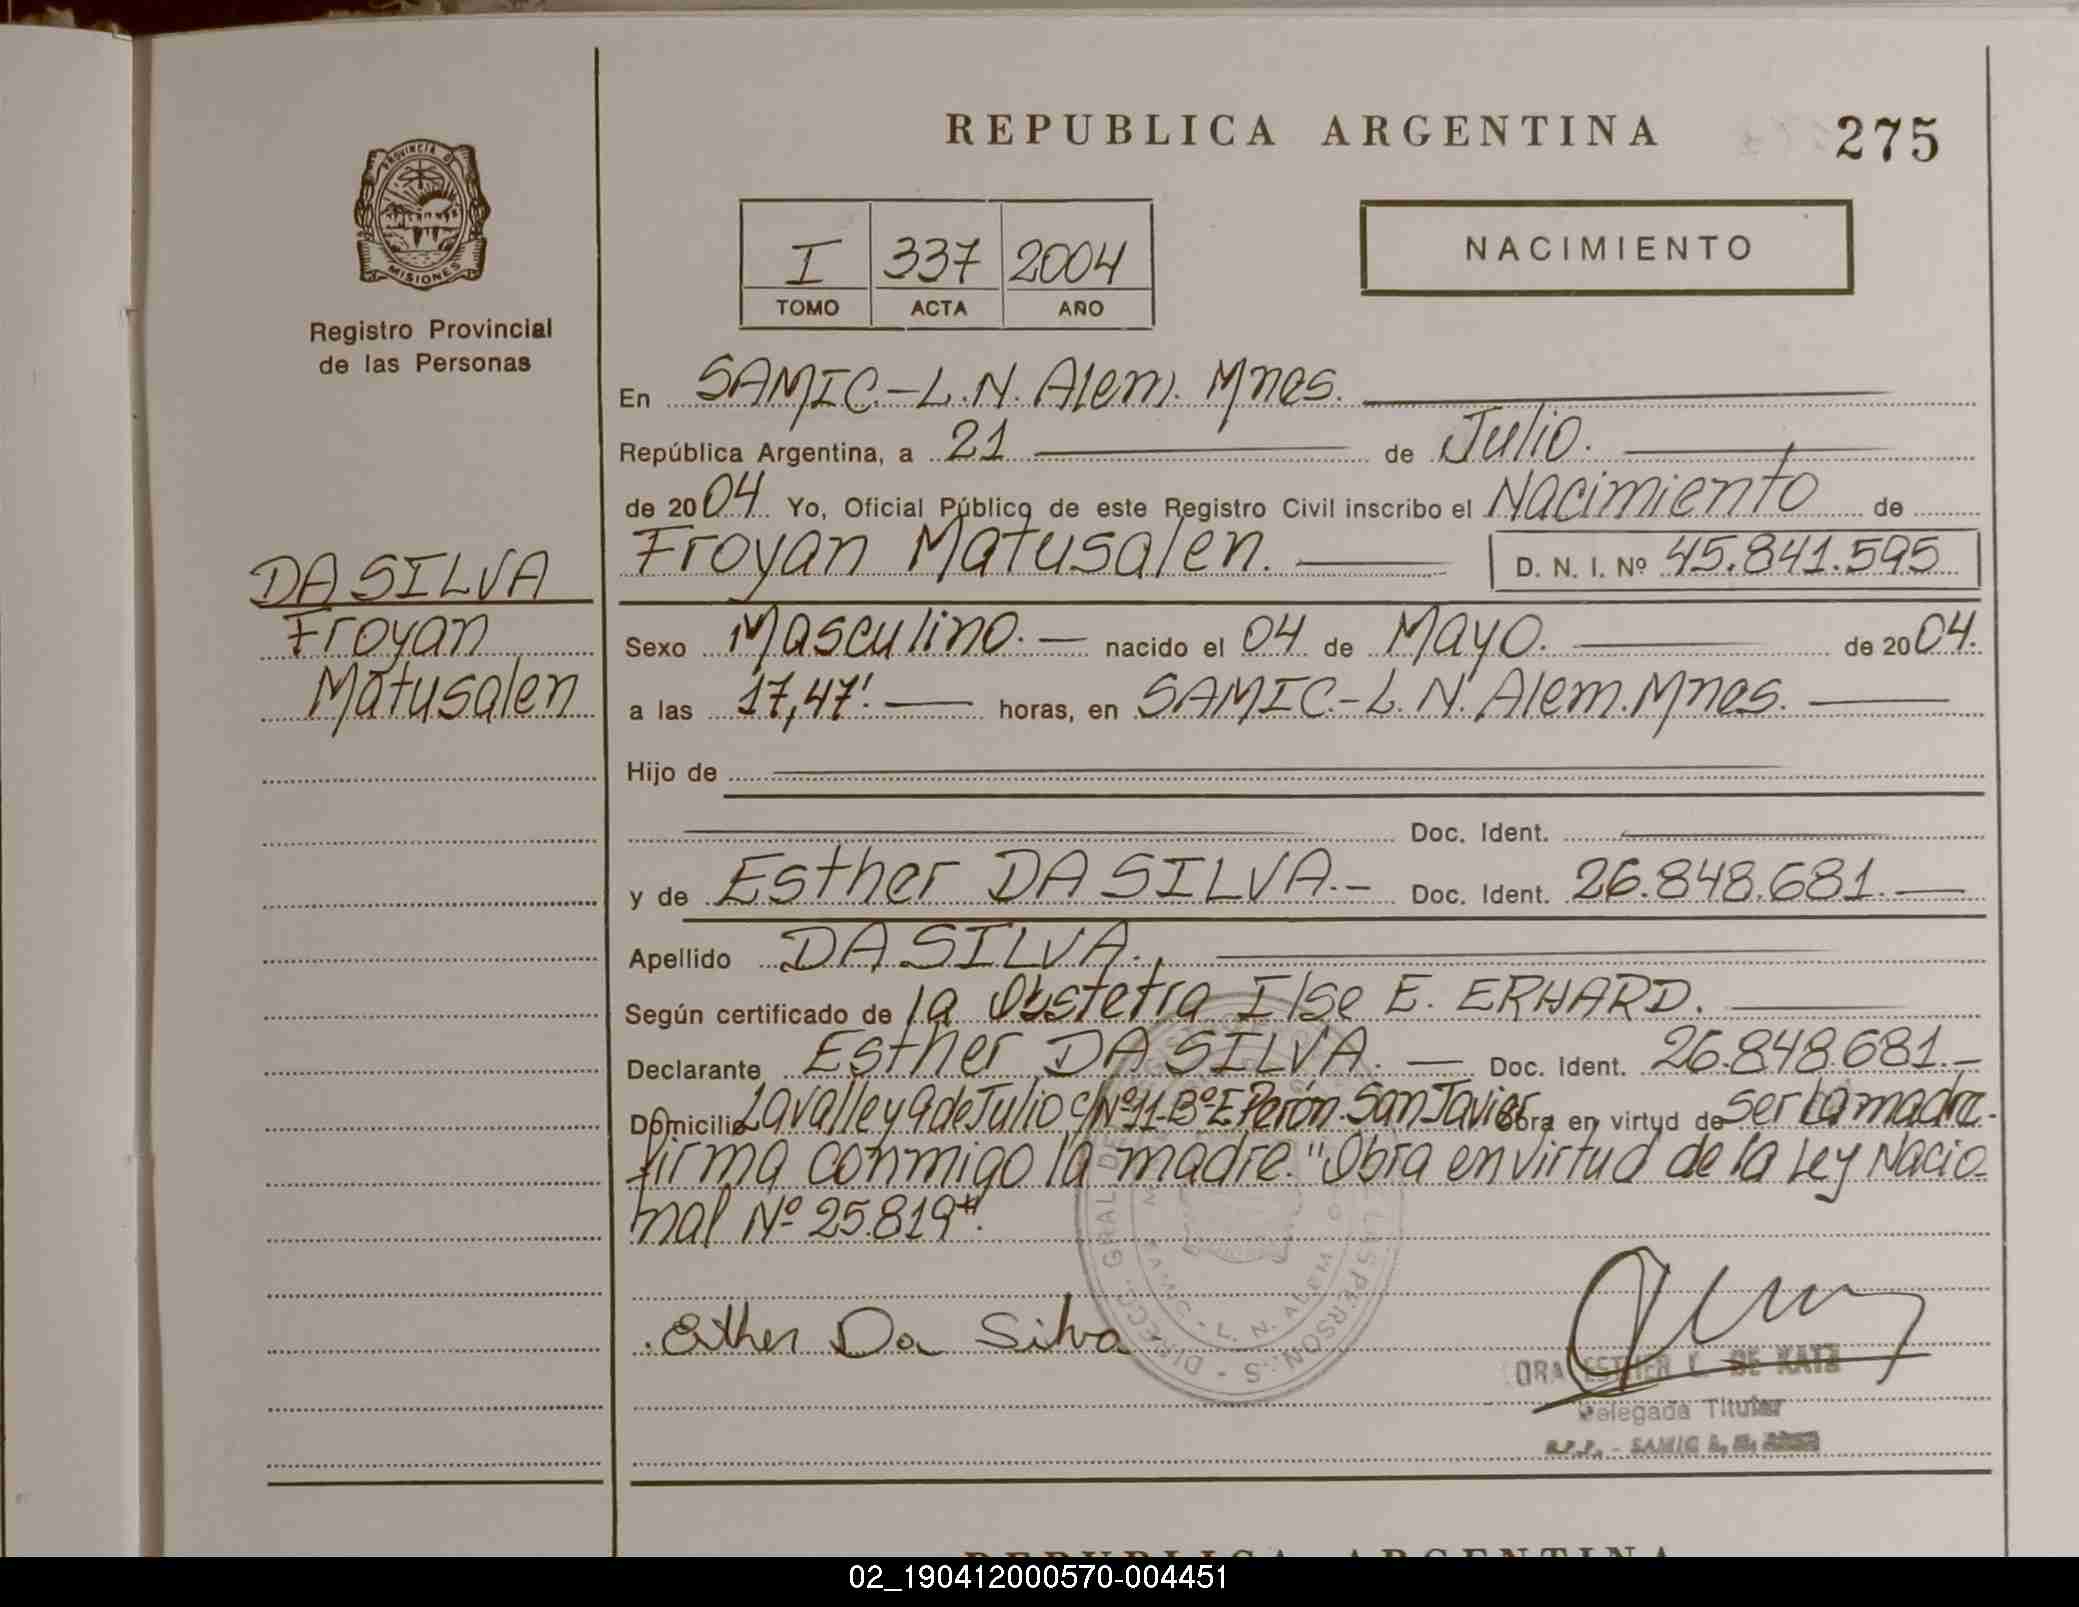 REPUBLICA ARGENTINA 275
PROVINCIA DE
MISIONES
Registro Provincial
de las Personas
I 337 2004
TOMO ACTA AÑO
NACIMIENTO
En SAMIC-L.N. Alem. Mnes.
República Argentina, a 21 de Julio.
de 2004 Yo, Oficial Público de este Registro Civil inscribo el Nacimiento de
Froyan Matusalen. D. N. I. Nº 45.841.595
DA SILVA
Froyan
Matusalen
Sexo Masculino. nacido el 04 de Mayo. de 2004.
a las 17,47'. horas, en SAMIC.-L.N. Alem. Mnes.
Hijo de
Doc. Ident.
y de Esther DA SILVA.- Doc. Ident. 26.848.681.
Apellido DA SILVA.
Según certificado de la Obstetra Ilse E. ERHARD.
Declarante Esther DA SILVA. Doc. Ident. 26.848.681.-
Domicilio Lavalle y 9 de Julio c/Nº11-Bº E. Perón. San Javier Obra en virtud de ser la madre.
firma conmigo la madre. "Obra en virtud de la Ley Nacio-
nal Nº 25.819".
Esther Da Silva
DRA. ESTHER L. DE KATZ
Delegada Titular
R.P.P. - SAMIC L. N.
DIRECC. GRAL. DE LAS PERSONAS
SAMIC - L. N. ALEM
REPUBLICA ARGENTINA
02_190412000570-004451